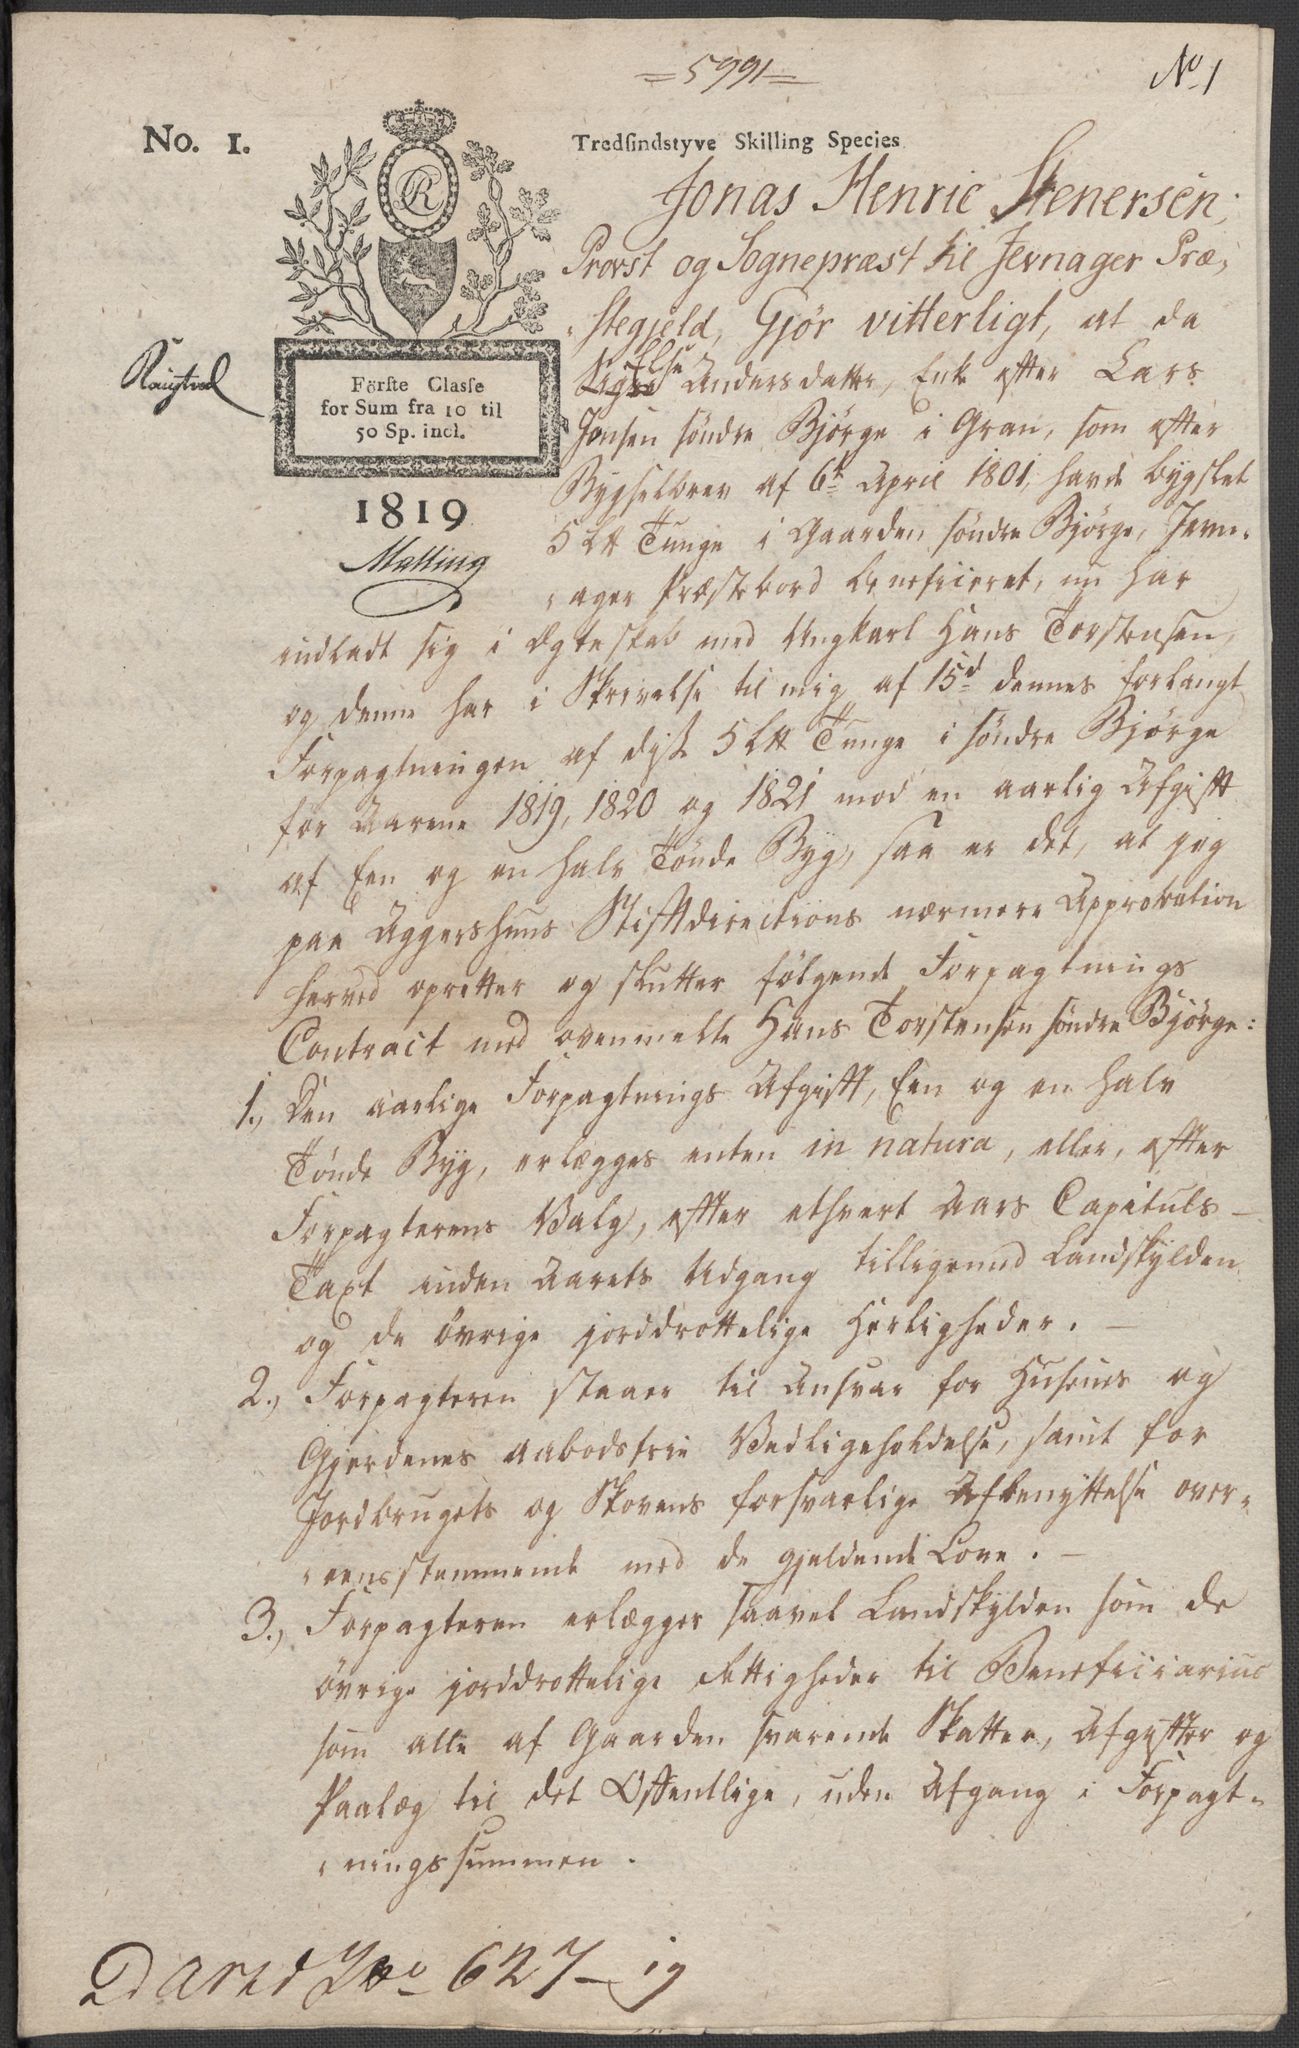 =5991=
No 1
No. 1.
Tredsindstyve Skilling Species
CR
Jonas Henric Stenersen,
Provst og Sognepræst til Jevnager Præ-
-stegjeld, Gjör vitterligt, at da
Else
Andersdatter, Enke efter Lars
Jonsen söndre Bjørge i Gran, som efter
Bygselbrev af 6t April 1801, havde bygslet
5 Ltt Tunge i Gaarden söndre Bjørge, Jevn-
-ager Præstebord beneficeret, nu har
Förste Classe
for Sum fra 10 til
50 Sp. incl.
1819
Malling
indladt sig i Ægteskab med Ungkarl Hans Torstensen,
og denne har i Skrivelse til mig af 15d dennes forlangt
Forpagtningen af disse 5 Ltt Tunge i söndre Bjørge
for Aarene 1819, 1820 og 1821 mod en aarlig Afgift
af Een og en halv Tönde Byg, saa er det, at jeg
paa Aggershuus Stiftdirections nærmere Approbation
herved opretter og slutter fölgende Forpagtnings
Contract med ovenmelte Hans Torstensen söndre Bjørge:
1., Den aarlige Forpagtnings Afgift, Een og en halv
Tönde Byg, erlægges enten in natura, eller, efter
Forpagterens Valg, efter ethvert Aars Capituls-
Taxt inden Aarets Udgang tilligemed Landskylden
og de övrige jorddrottelige Herligheder. –
2., Forpagteren staaer til Ansvar for Husenes og
Gjerdenes aabodsfrie Vedligeholdelse, samt for
Jordbrugets og Skovens forsvarlige Afbenyttelse over-
-eensstemmende med de gjeldende Love. –
3., Forpagteren erlægger saavel Landskylden som de
övrige jorddrottelige Rettigheder til Beneficiarius
som alle af Gaarden svarende Skatter, Afgifter og
Paalæg til det Offentlige, uden Afgang i Forpagt-
-ningssummen.
627